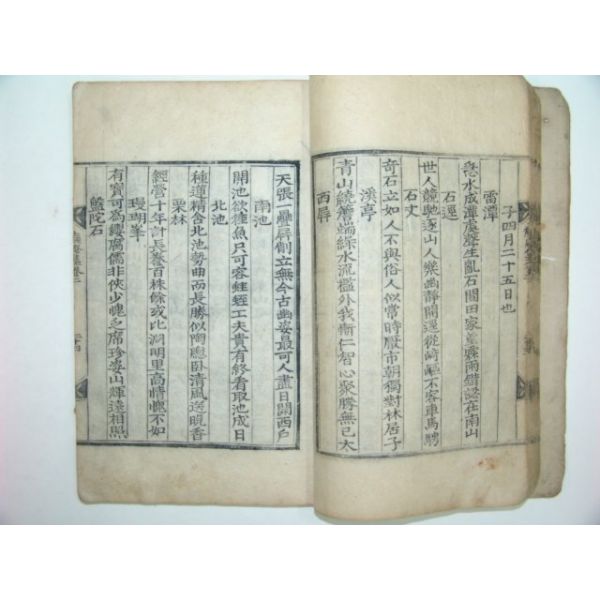 子四月二十五日也
雷潭
急水成潭處聲生亂石間田家望霖雨
在南山
石逕
世人競馳逐山人樂幽靜開逕從崎嶇不容車馬騁
石丈
奇石立如人不與俗人似當時厭市朝獨對林居子
溪亭
青山繞簷端綠水流檻外我衝仁智心聚勝無已太
西屛
天張一疊屛削立無今古幽姿最可人盡日開西戶
南池
開池欲種魚尺可容
工夫貴有終看取池成日
北池
種蓮精舍北池勢曲而長勝似陶聰臥淸風送晩香
栗林
經營十年計長養百株餘或比淵明里高情愧不如
珊瑚峯
有實可爲
腐儒非俠少愧之席珍姿山輝遠相照
盤陀石